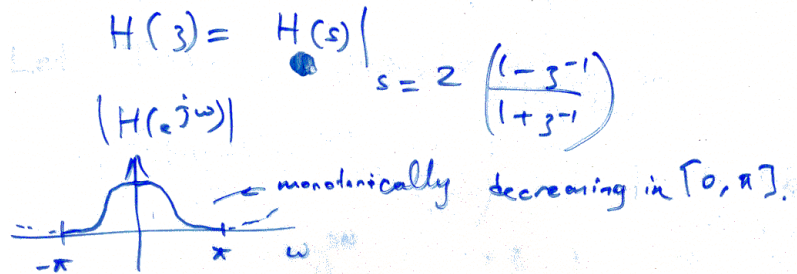 H(z) = H(s)|
s = 2 (1 - z⁻¹ / 1 + z⁻¹)
|H(e^jω)|
monotonically decreasing in [0, π].
-π π ω